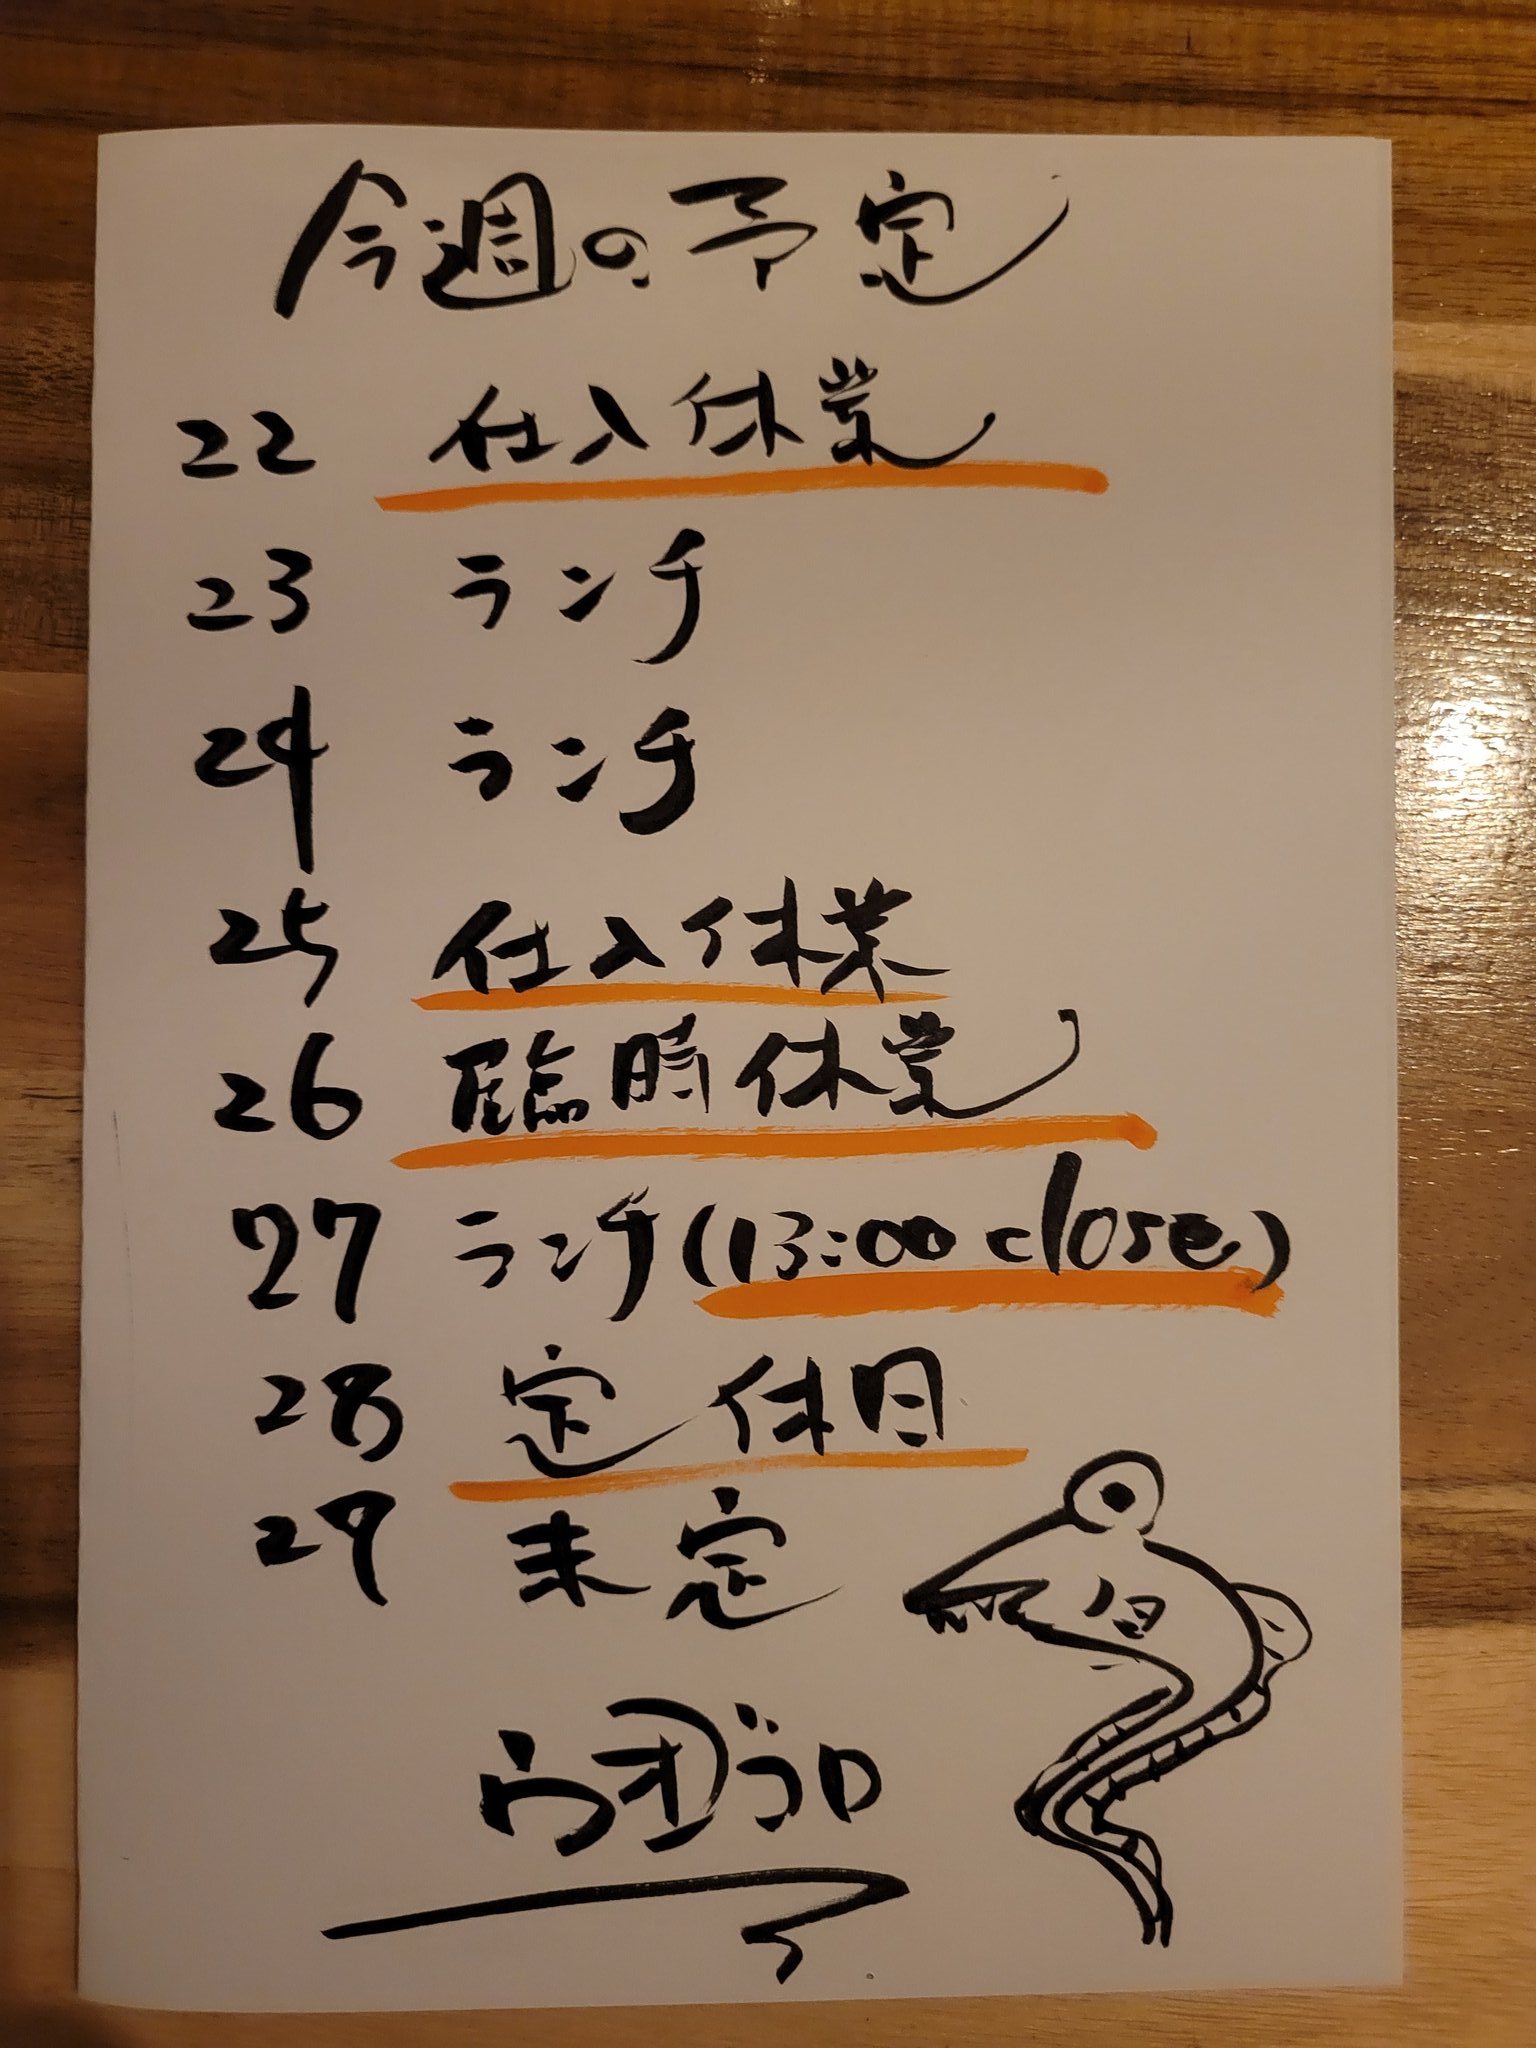 今週の予定
22 仕入休業
23 ランチ
24 ランチ
25 仕入休業
26 臨時休業
27 ランチ(13:00 close)
28 定休日
29 未定
ゴロ